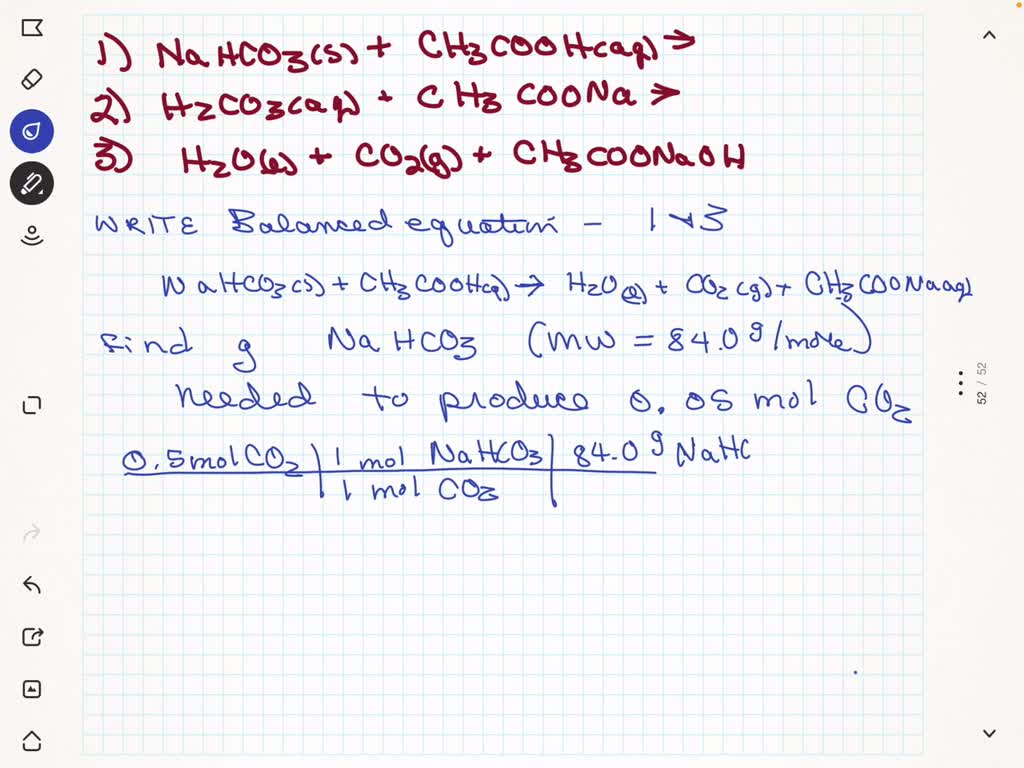 1) NaHCO3(s) + CH3COOH(aq) →
2) H2CO3(aq) + CH3COONa →
3) H2O(l) + CO2(g) + CH3COONaOH
WRITE Balanced equation - 1 + 3
NaHCO3(s) + CH3COOH(aq) → H2O(l) + CO2(g) + CH3COONa(aq)
find g NaHCO3 (mw = 84.0 g/mole)
needed to produce 0.05 mol CO2
0.5 mol CO2 | 1 mol NaHCO3 | 84.0 g NaHC
1 mol CO2
52 / 52